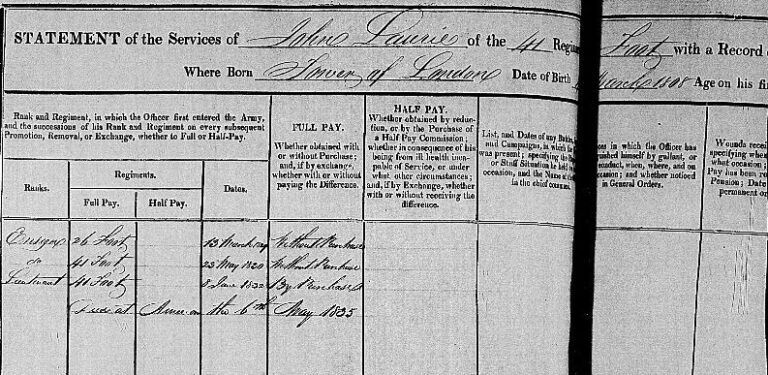 STATEMENT of the Services of John Laurie of the 41 Regim Foot with a Record
Where Born Tower of London Date of Birth March 1808 Age on his fir
Rank and Regiment, in which the Officer first entered the Army,
and the successions of his Rank and Regiment on every subsequent
Promotion, Removal, or Exchange, whether to Full or Half-Pay.
Ranks.
Regiments.
Full Pay.
Half Pay.
Dates.
FULL PAY.
Whether obtained with
or without Purchase;
and, if by exchange,
whether with or without
paying the Difference.
HALF PAY.
Whether obtained by reduc-
tion, or by the Purchase of
a Half Pay Commission
whether in consequence of his
being from ill health incap-
able of Service, or under
what other circumstances;
and, if by Exchange, whether
with or without receiving the
difference.
List, and Dates of any Battles
and Campaigns, in which he
was present; specifying the
or Staff Situation he held
occasion, and the Name of
in the chief comman
ons in which the Officer has
guished himself by gallant, or
conduct, when, where, and on
ccasion; and whether noticed
in General Orders.
Wounds recei
specifying when
what occasion;
Pay has been ro
Pension; Date
permanent or
Ensign 26 Foot 13 March Without Purchase
Do 41 Foot 23 May Without Purchase
Lieutenant 41 Foot 8 June 1832 By Purchase
Died at on the 6th May 1835